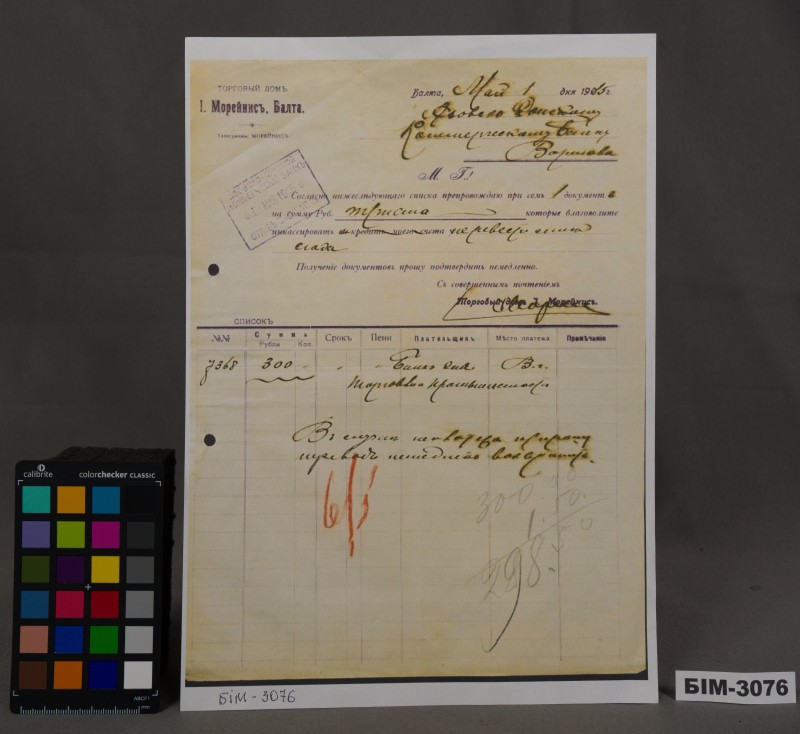 ТОРГОВЫЙ ДОМЪ
I. Морейнисъ, Балта.
Телеграммы: МОРЕЙНИСЪ
Балта, Май 1 дня 1915 г.
Азовско Донскому
Коммерческому Банку
М. Г.!
Согласно нижеслѣдующаго списка препровождаю при семъ 1 документъ
на сумму Руб. триста которые благоволите
инкассировать и кредить моего счета
Полученіе документовъ прошу подтвердить немедленно.
Съ совершеннымъ почтеніемъ
Торговый домъ I. Морейнисъ.
СПИСОКЪ
№№ Сумма Рубли Коп. Срокъ Пени Плательщикъ Мѣсто платежа Примѣчаніе
7368 300 - " - Банкъ для В.г.
Торговли
Въ случаѣ прошу
переводъ возвратить.
6/5
300.
1.
298.
calibrite colorchecker CLASSIC
mm
БІМ-3076
БІМ-3076